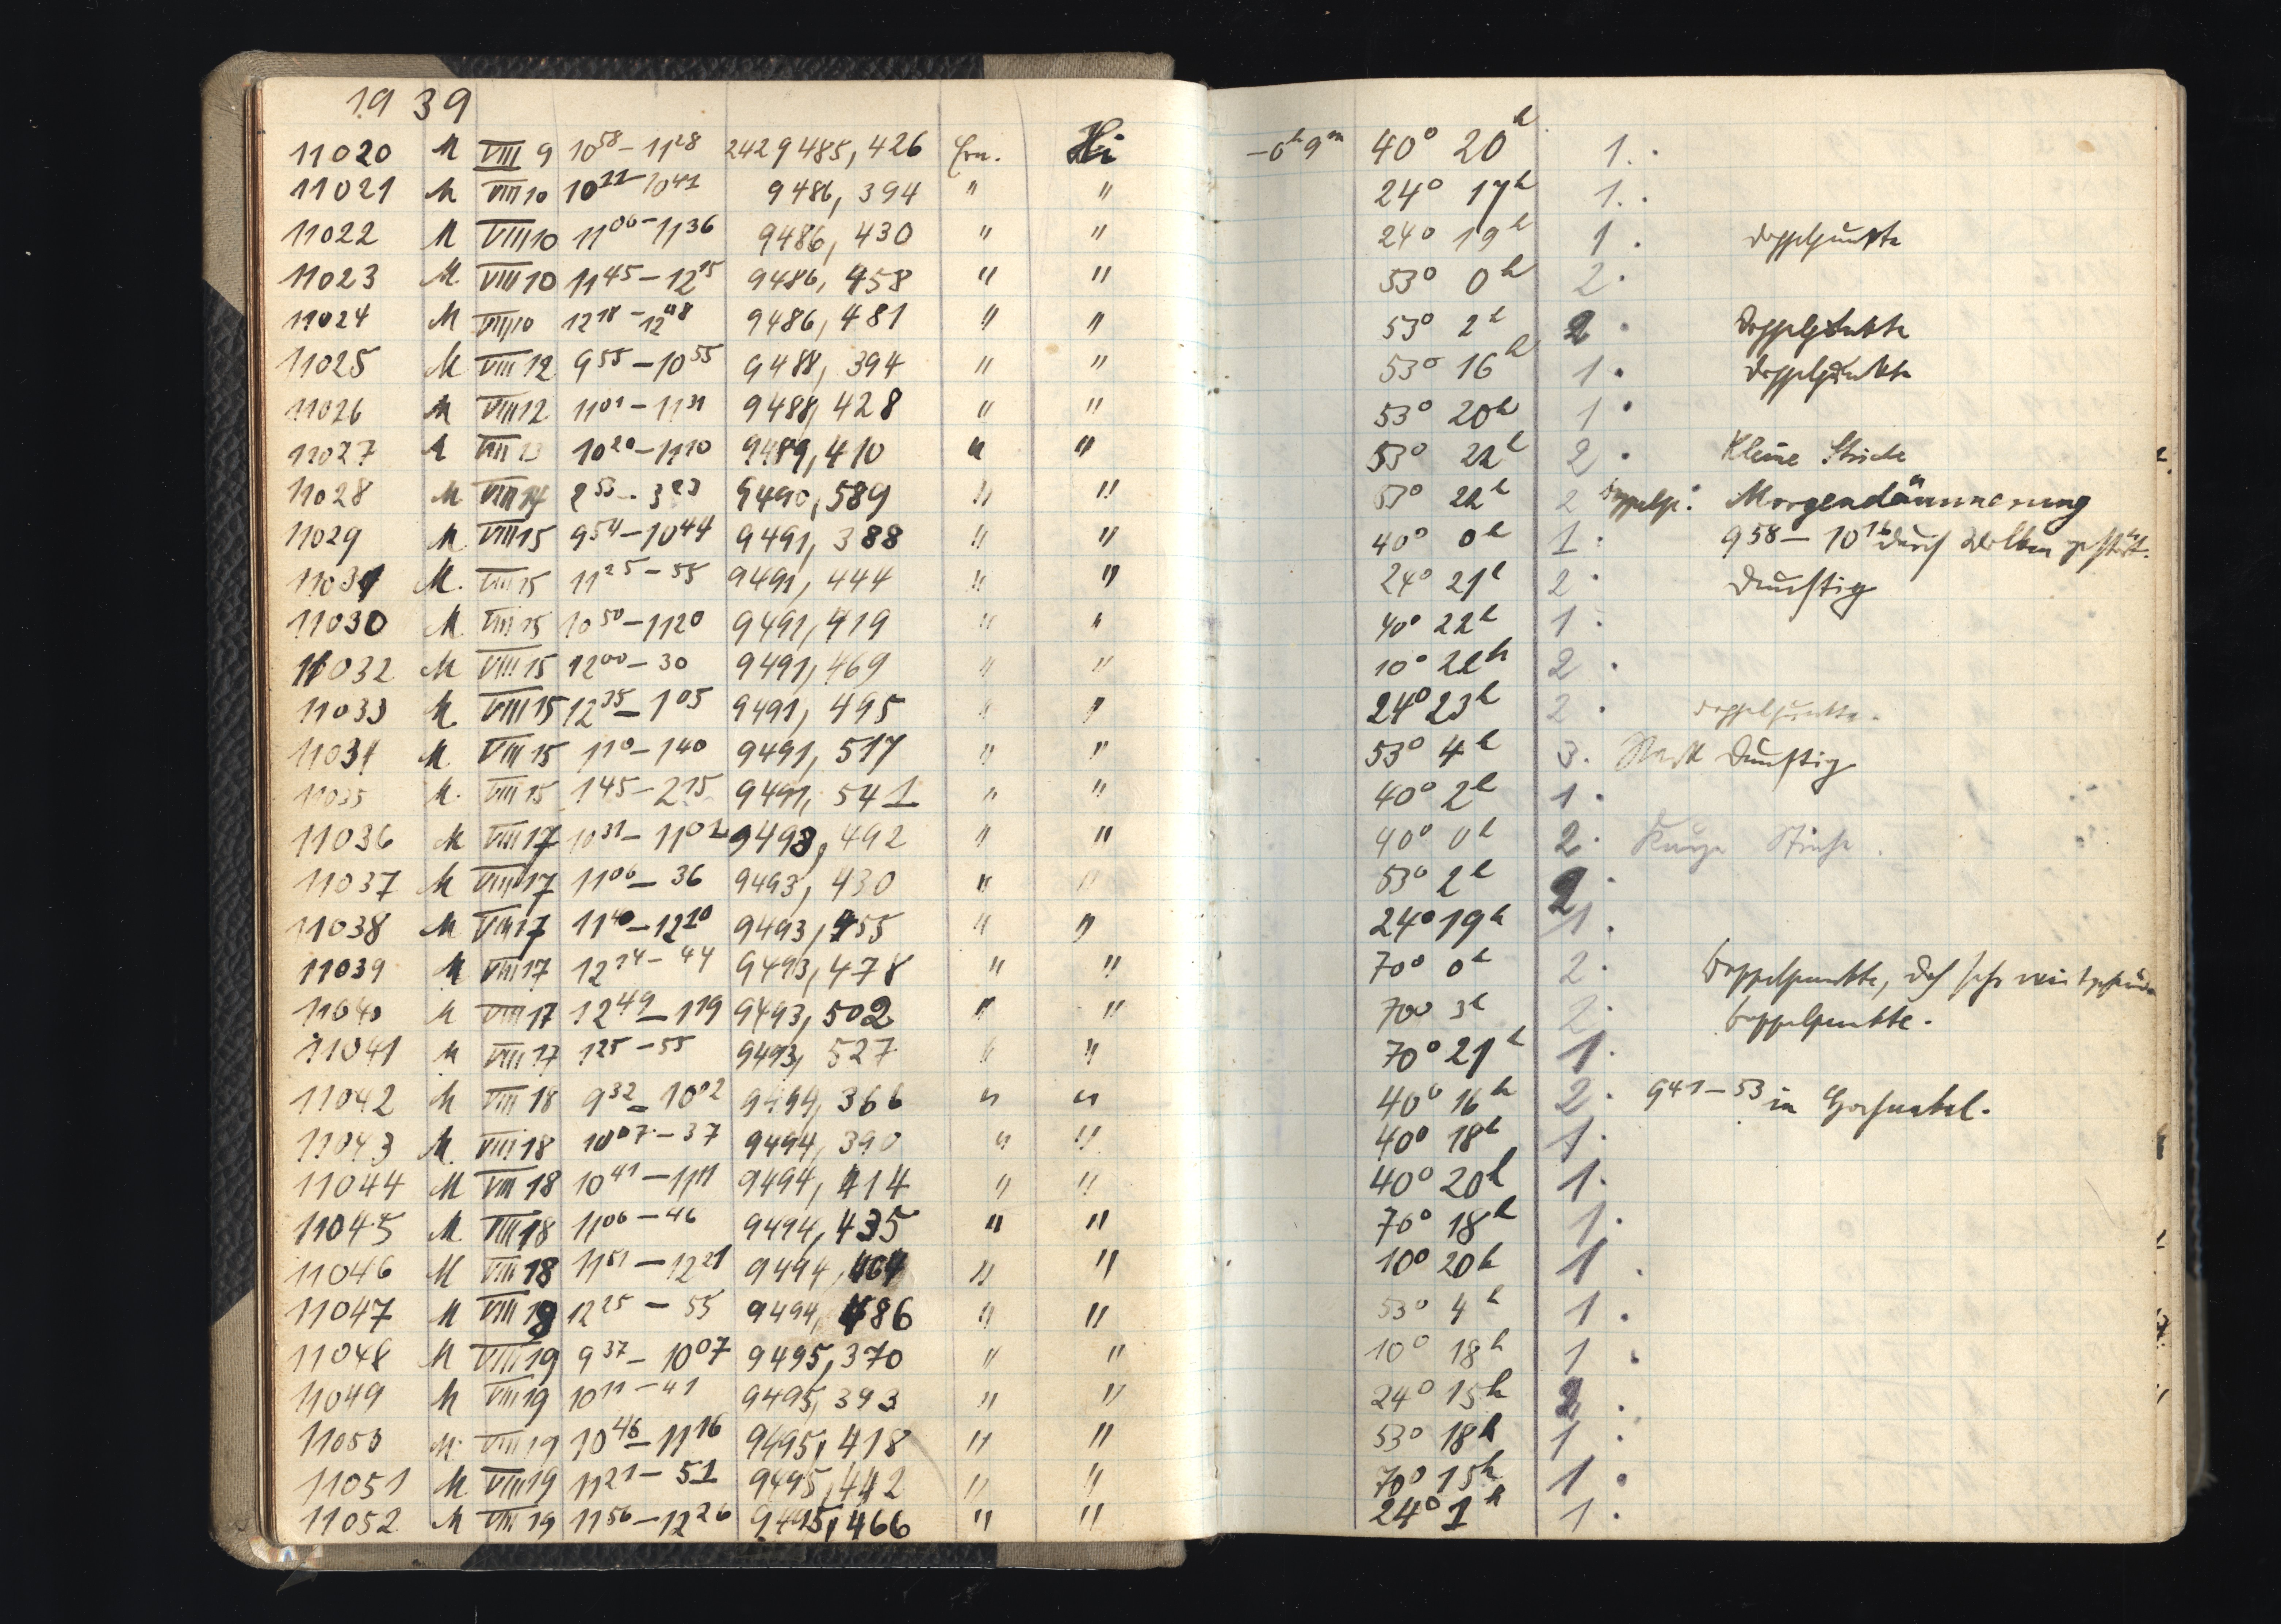 1939
11020 M VIII 9 10 58 – 11 28 2429485,426 Ern. Hi – 0h 9m 40° 20h 1.
11021 M VIII 10 10 11 – 10 41 9486,394 " " 24° 17h 1.
11022 M VIII 10 11 06 – 11 36 9486,430 " " 24° 19h 1. Doppelpunkte
11023 M. VIII 10 11 45 – 12 15 9486,458 " " 53° 0h 2.
11024 M VIII 10 12 18 – 12 48 9486,481 " " 53° 2h 2. Doppelpunkte
11025 M VIII 12 9 55 – 10 55 9488,394 " " 53° 16h 1. Doppelpunkte
11026 M VIII 12 11 01 – 11 31 9488,428 " " 53° 20h 1.
11027 M VIII 13 10 20 – 11 10 9489,410 " " 53° 22h 2. Kleine Striche
11028 M VIII 14 2 53 – 3 23 9490,589 " " 53° 22h 2 Doppelp. Morgendämmerung
11029 M VIII 15 9 54 – 10 44 9491,388 " " 40° 0h 1. 9 58 – 10 16 durch Wolken gestört.
11031 M. VIII 15 11 25 – 55 9491,444 " " 24° 21h 2. Dunstig
11030 M. VIII 15 10 50 – 11 20 9491,419 " " 40° 22h 1.
11032 M VIII 15 12 00 – 30 9491,469 " " 10° 22h 2.
11033 M. VIII 15 12 35 – 1 05 9491,495 " " 24° 23h 2. Doppelpunkte.
11034 M. VIII 15 1 10 – 1 40 9491,517 " " 53° 4h 3. Stark Dunstig
11035 M. VIII 15 1 45 – 2 15 9491,541 " " 40° 2h 1.
11036 M VIII 17 10 31 – 11 01 9493,492 " " 40° 0h 2. Kurze Striche.
11037 M VIII 17 11 06 – 36 9493,430 " " 53° 2h 2.
11038 M VIII 17 11 40 – 12 10 9493,455 " " 24° 19h 1.
11039 M VIII 17 12 14 – 44 9493,478 " " 70° 0h 2. Doppelpunkte, doch sehr
11040 M VIII 17 12 49 – 1 19 9493,502 " " 70° 3h 2. Doppelpunkte.
11041 M VIII 17 1 25 – 55 9493,527 " " 70° 21h 1.
11042 M VIII 18 9 32 – 10 02 9494,366 " " 40° 16h 2. 9 41 – 53 in Hochnebel.
11043 M. VIII 18 10 07 – 37 9494,390 " " 40° 18h 1.
11044 M VIII 18 10 41 – 11 11 9494,414 " " 40° 20h 1.
11045 M. VIII 18 11 06 – 46 9494,435 " " 70° 18h 1.
11046 M VIII 18 11 51 – 12 21 9494,464 " " 10° 20h 1.
11047 M VIII 18 12 25 – 55 9494,486 " " 53° 4h 1.
11048 M VIII 19 9 37 – 10 07 9495,370 " " 10° 18h 1.
11049 M VIII 19 10 11 – 41 9495,393 " " 24° 15h 2.
11050 M. VIII 19 10 46 – 11 16 9495,418 " " 53° 18h 1.
11051 M VIII 19 11 21 – 51 9495,442 " " 70° 15h 1.
11052 M VIII 19 11 56 – 12 26 9495,466 " " 24° 1h 1.